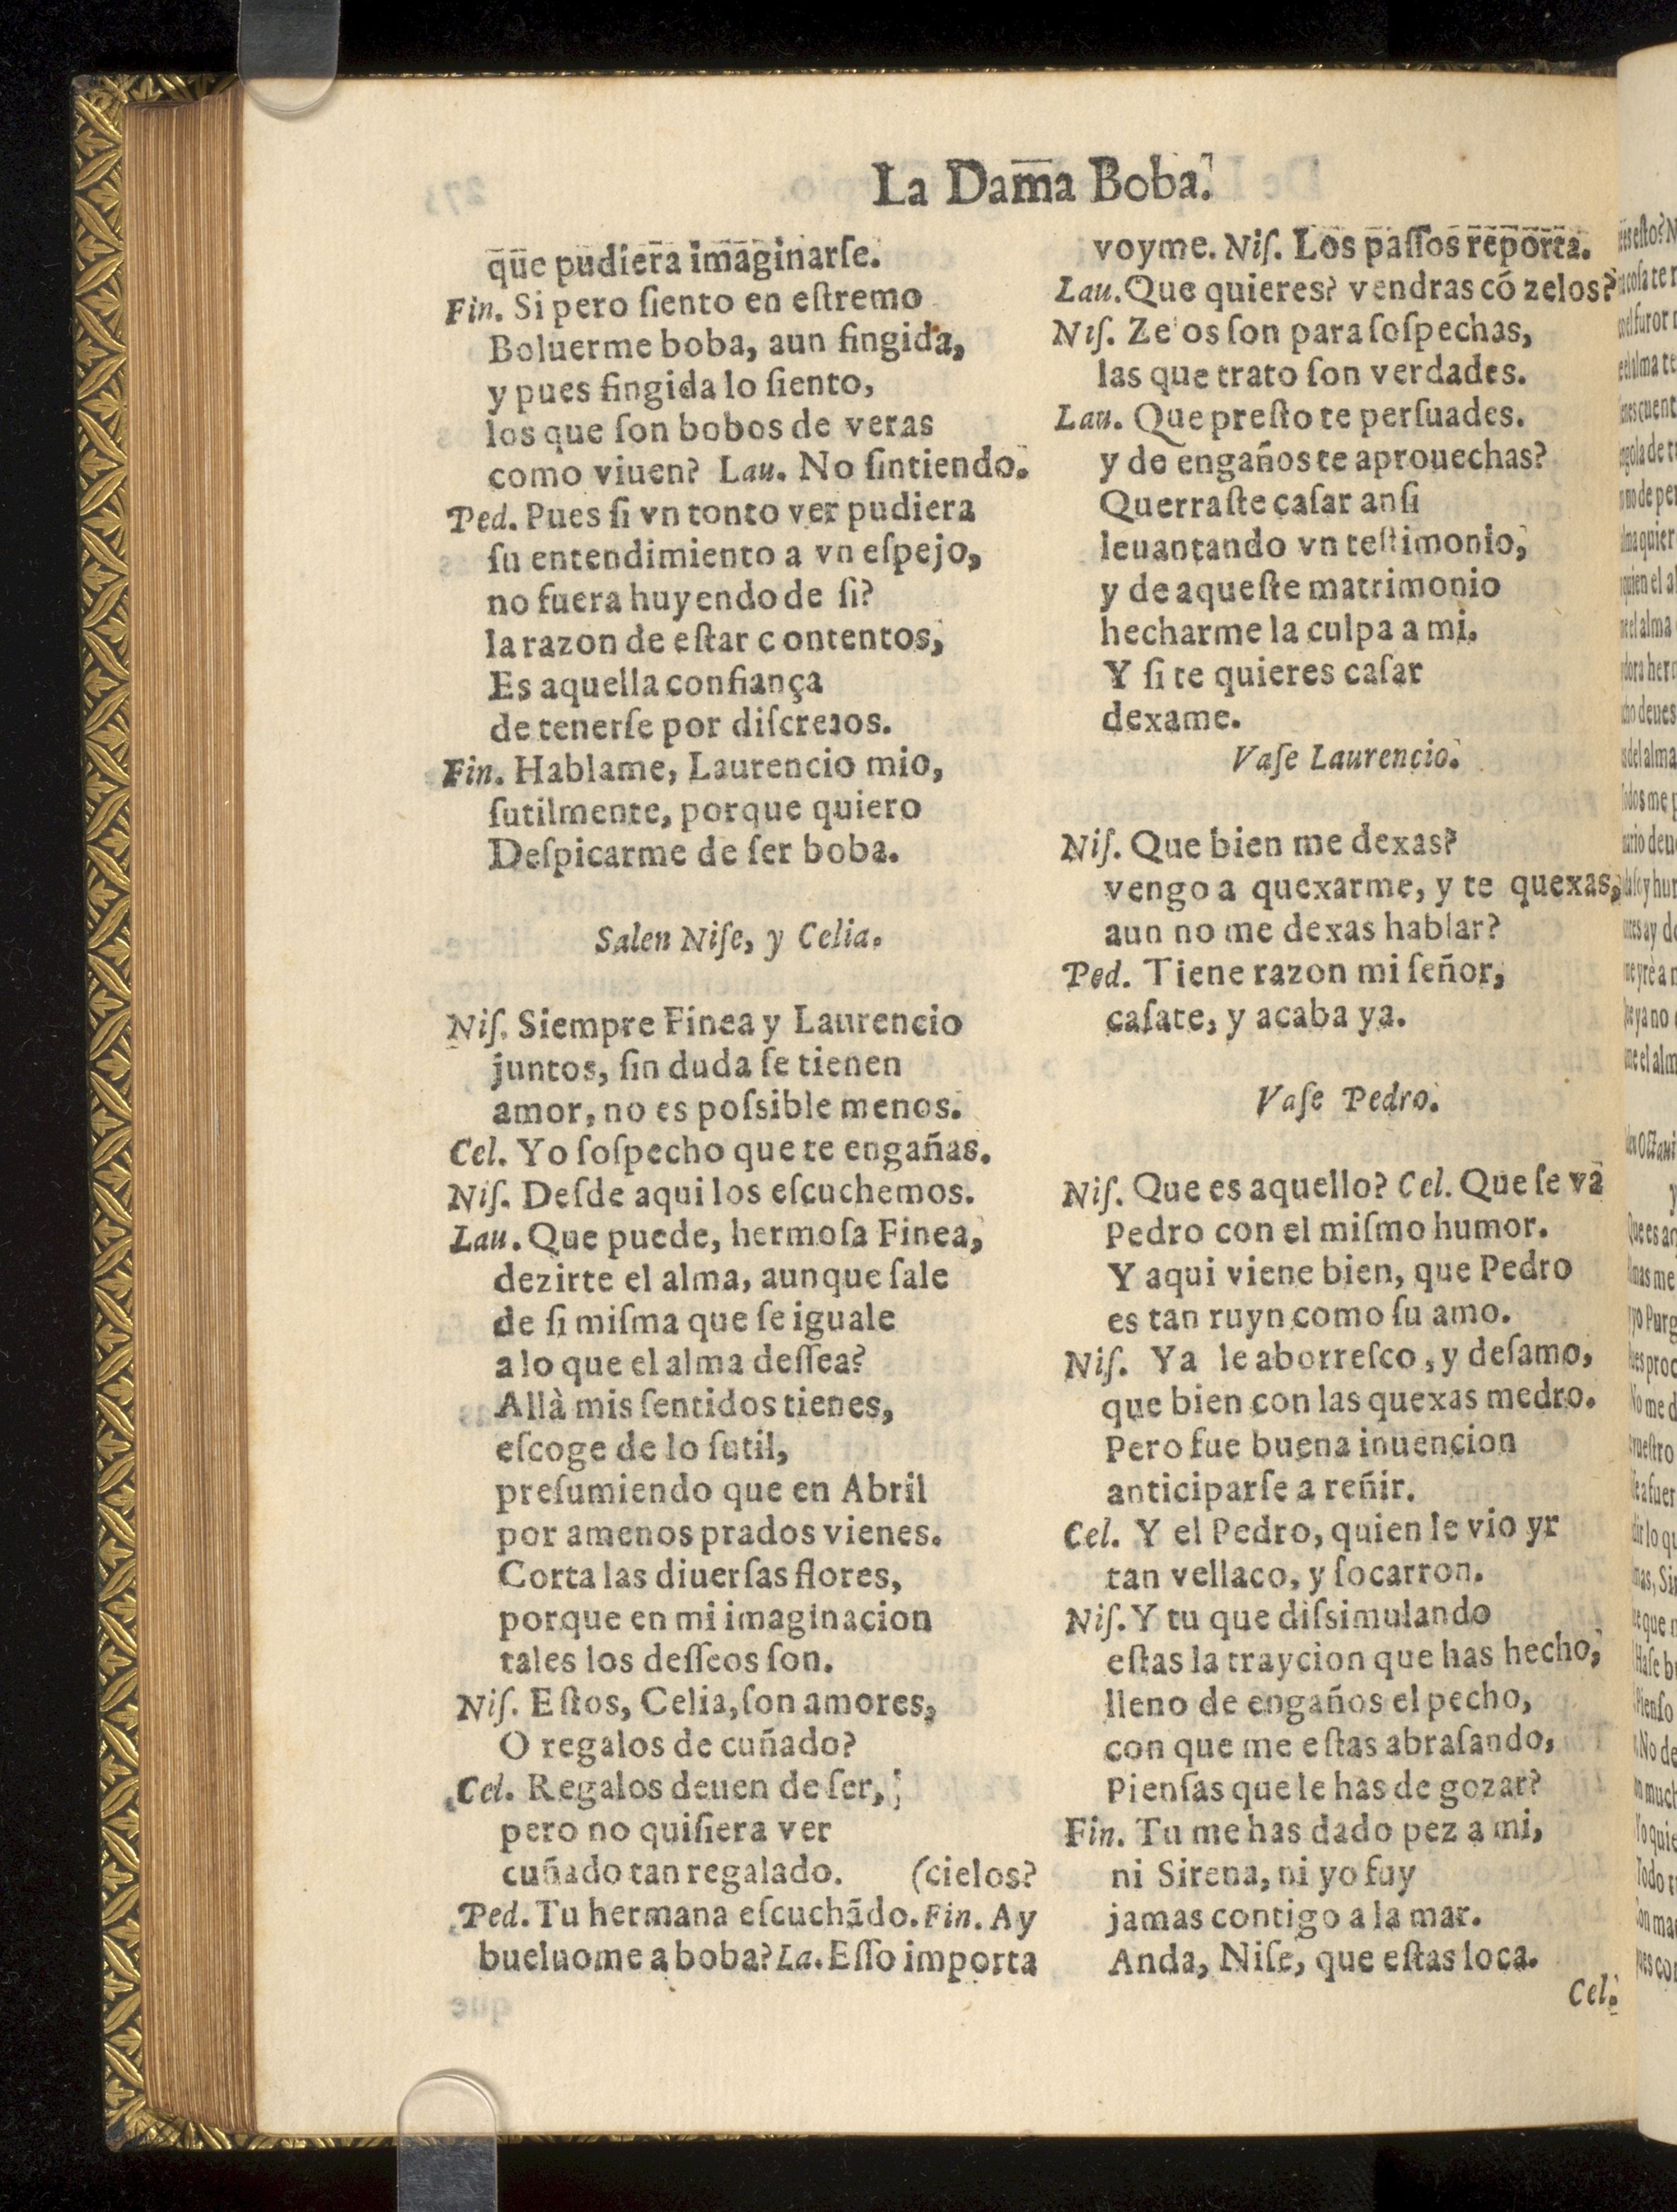 La Dama Boba.
que pudiera imaginarſe.
Fin. Si pero ſiento en eſtremo
Boluerme boba, aun fingida,
y pues fingida lo ſiento,
los que ſon bobos de veras
como viuen? Lau. No ſintiendo.
Ped. Pues ſi vn tonto ver pudiera
ſu entendimiento a vn eſpejo,
no fuera huyendo de ſi?
la razon de eſtar contentos,
Es aquella confiança
de tenerſe por diſcretos.
Fin. Hablame, Laurencio mio,
ſutilmente, porque quiero
Deſpicarme de ſer boba.
Salen Niſe, y Celia.
Niſ. Siempre Finea y Laurencio
juntos, ſin duda ſe tienen
amor, no es poſsible menos.
Cel. Yo ſoſpecho que te engañas.
Niſ. Deſde aqui los eſcuchemos.
Lau. Que puede, hermoſa Finea,
dezirte el alma, aunque ſale
de ſi miſma que ſe iguale
a lo que el alma deſſea?
Allà mis ſentidos tienes,
eſcoge de lo ſutil,
preſumiendo que en Abril
por amenos prados vienes.
Corta las diuerſas flores,
porque en mi imaginacion
tales los deſſeos ſon.
Niſ. Eſtos, Celia, ſon amores,
O regalos de cuñado?
Cel. Regalos deuen de ſer,
pero no quiſiera ver
cuñado tan regalado. (cielos?
Ped. Tu hermana eſcuchãdo. Fin. Ay
bueluome a boba? La. Eſſo importa
voyme. Niſ. Los paſſos reporta.
Lau. Que quieres? vendras có zelos?
Niſ. Ze os ſon para ſoſpechas,
las que trato ſon verdades.
Lau. Que preſto te perſuades.
y de engaños te aprouechas?
Querraſte caſar anſi
leuantando vn teſtimonio,
y de aqueſte matrimonio
hecharme la culpa a mi.
Y ſi te quieres caſar
dexame.
Vaſe Laurencio.
Niſ. Que bien me dexas?
vengo a quexarme, y te quexas,
aun no me dexas hablar?
Ped. Tiene razon mi ſeñor,
caſate, y acaba ya.
Vaſe Pedro.
Niſ. Que es aquello? Cel. Que ſe và
Pedro con el miſmo humor.
Y aqui viene bien, que Pedro
es tan ruyn como ſu amo.
Niſ. Ya le aborreſco, y deſamo,
que bien con las quexas medro.
Pero fue buena inuencion
anticiparſe a reñir.
Cel. Y el Pedro, quien le vio yr
tan vellaco, y ſocarron.
Niſ. Y tu que diſsimulando
eſtas la traycion que has hecho,
lleno de engaños el pecho,
con que me eſtas abraſando,
Pienſas que le has de gozar?
Fin. Tu me has dado pez a mi,
ni Sirena, ni yo fuy
jamas contigo a la mar.
Anda, Niſe, que eſtas loca.
Cel.